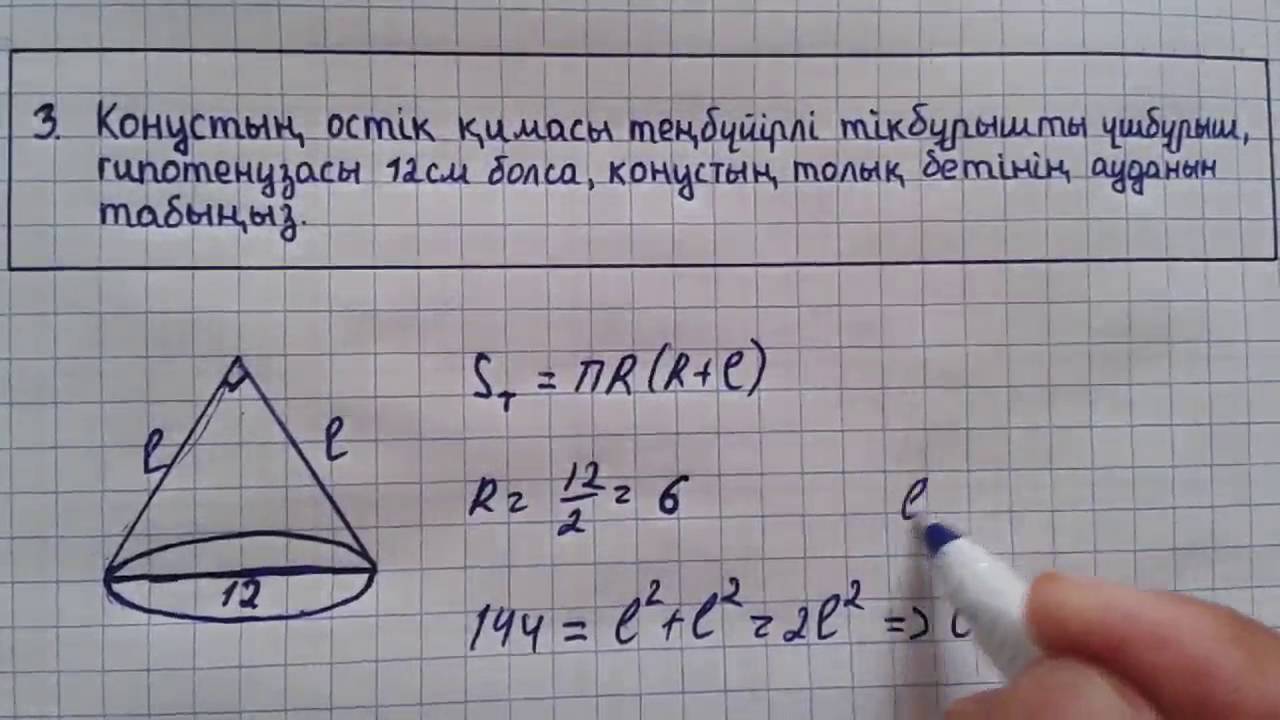 3. Конустың остік қимасы теңбүйірлі тікбұрышты үшбұрыш,
гипотенузасы 12см болса, конустың толық бетінің ауданын
табыңыз.
Sт = πR(R+ℓ)
ℓ ℓ
R = 12/2 = 6 ℓ
12
144 = ℓ²+ℓ² = 2ℓ² =>